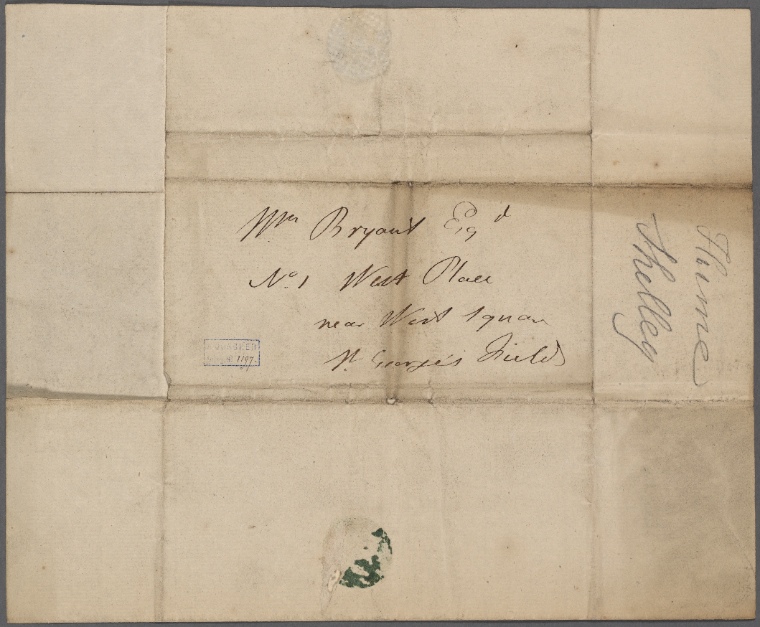 Wm Bryant Esqd
No. 1 West Place
near West Square
St. George's Fields
Hume
Shelley
1197